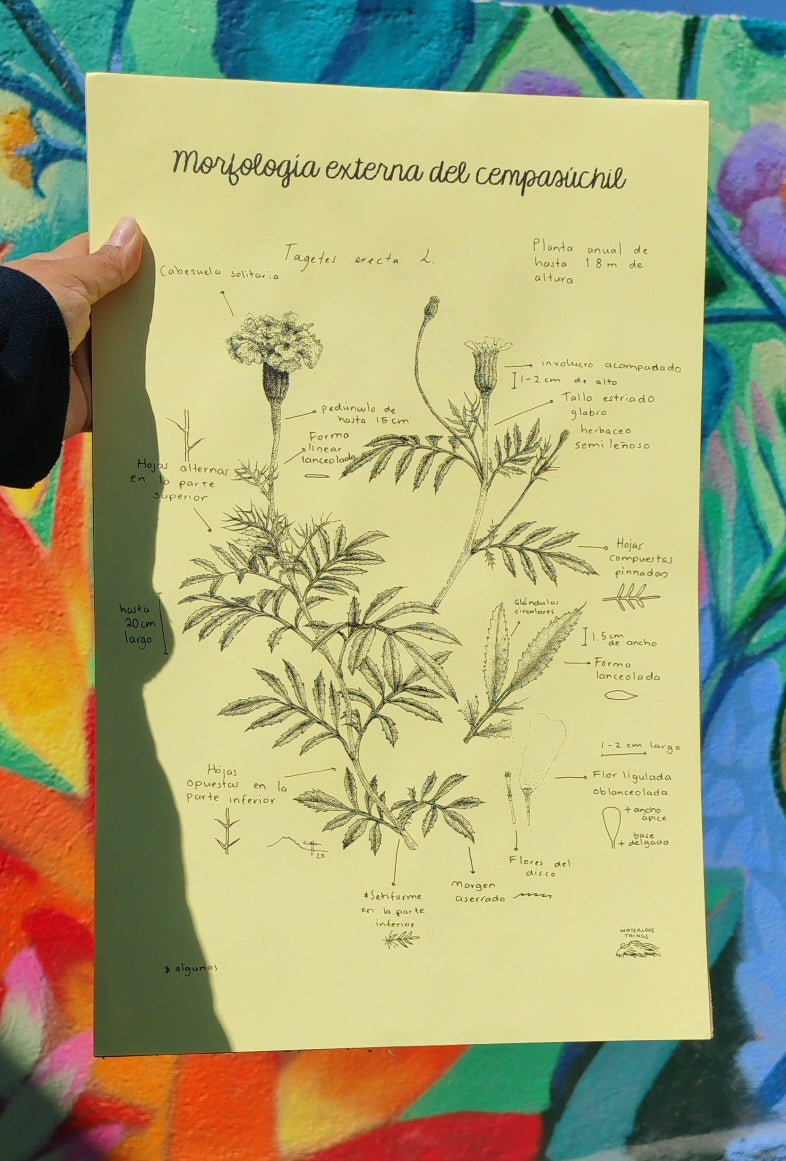 Morfología externa del cempasúchil
Tagetes erecta L.
Planta anual de
hasta 1.8 m de
altura
Cabezuela solitaria
involucro acampadado
1-2 cm de alto
Tallo estriado
glabro
herbaceo
semi leñoso
pedúnculo de
hasta 15 cm
Forma
linear
lanceolada
Hojas alternas
en la parte
superior
Hojas
compuestas
pinnadas
hasta
20 cm
largo
Glándulas
circulares
1.5 cm
de ancho
Forma
lanceolada
1-2 cm largo
Flor ligulada
oblanceolada
+ ancho
ápice
base
+ delgado
Hojas
opuestas en la
parte inferior
23
Flores del
disco
Margen
aserrado
*Setiforme
en la parte
inferior
* algunas
WATERLOOS
THINGS